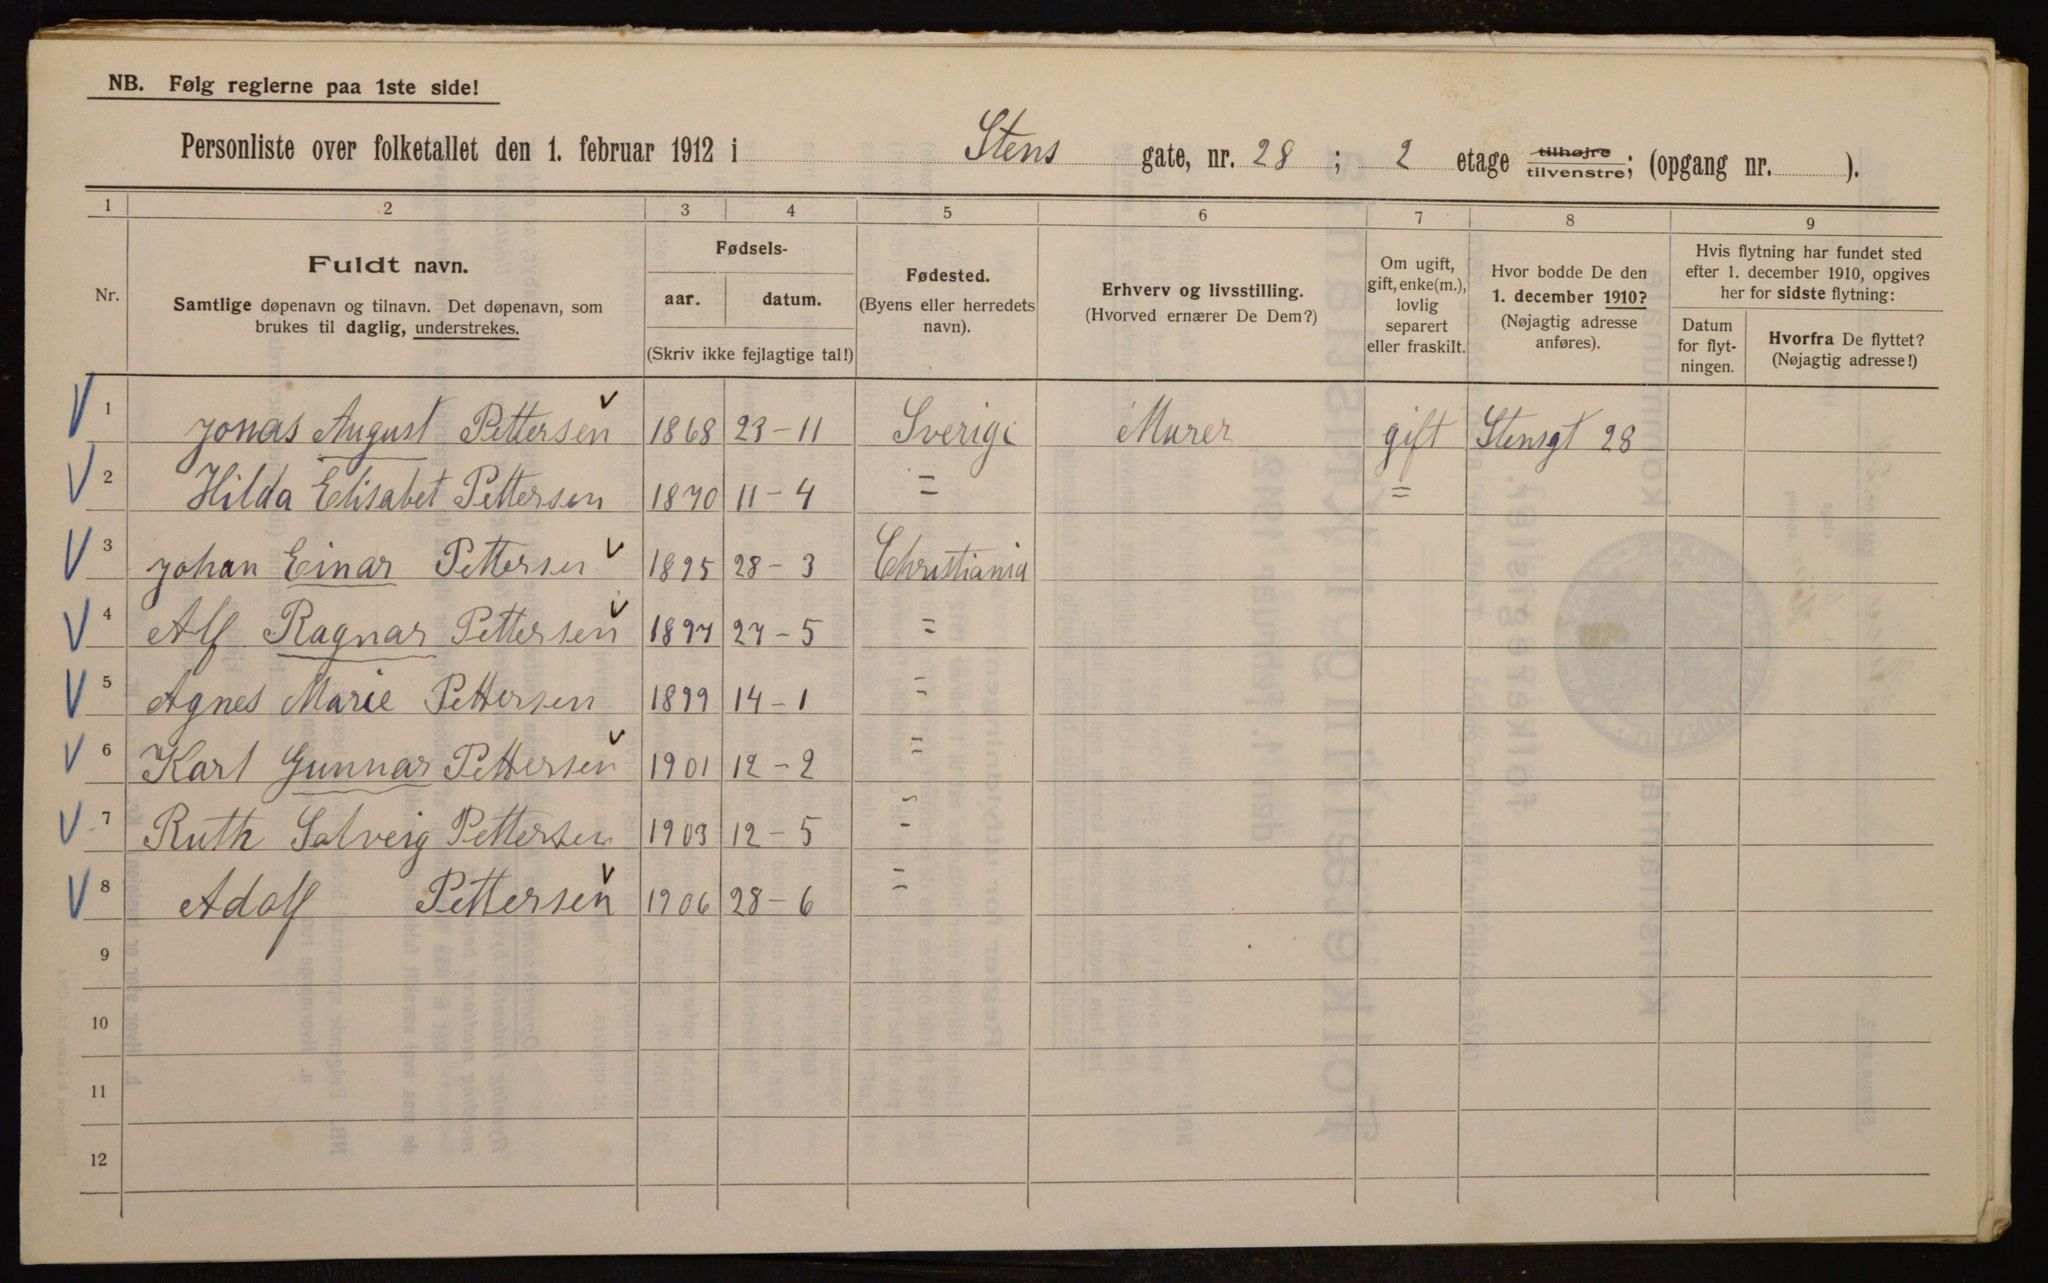 NB. Følg reglerne paa 1ste side!
Personliste over folketallet den 1. februar 1912 i Stens gate, nr. 28 ; 2 etage tilhøjre tilvenstre; (opgang nr. ).
1 2 3 4 5 6 7 8 9
Nr.
Fuldt navn.
Samtlige døpenavn og tilnavn. Det døpenavn, som
brukes til daglig, understrekes.
Fødsels-
aar. datum.
(Skriv ikke fejlagtige tal!)
Fødested.
(Byens eller herredets
navn).
Erhverv og livsstilling.
(Hvorved ernærer De Dem?)
Om ugift,
gift, enke(m.),
lovlig
separert
eller fraskilt.
Hvor bodde De den
1. december 1910?
(Nøjagtig adresse
anføres).
Hvis flytning har fundet sted
efter 1. december 1910, opgives
her for sidste flytning:
Datum
for flyt-
ningen.
Hvorfra De flyttet?
(Nøjagtig adresse!)
1 Jonas August Pettersen 1868 23-11 Sverige Murer gift Stensgt 28
2 Hilda Elisabet Pettersen 1870 11-4 = =
3 Johan Einar Pettersen 1895 28-3 Christiania
4 Alf Ragnar Pettersen 1897 27-5 =
5 Agnes Marie Pettersen 1899 14-1 "
6 Karl Gunnar Pettersen 1901 12-2 "
7 Ruth Solveig Pettersen 1903 12-5 "
8 Adolf Pettersen 1906 28-6 "
9
10
11
12